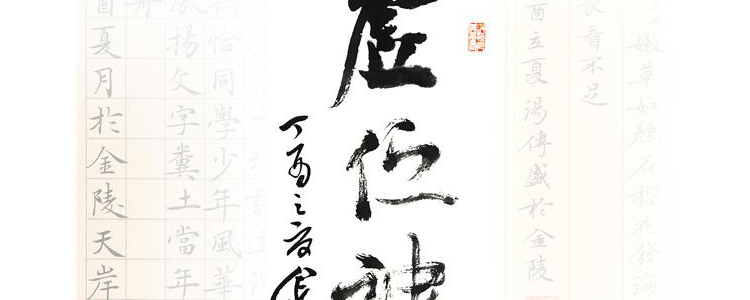 嫩草如煙石榴花發海
長看不足
酉立夏湯傳盛於金陵
虛伫神
丁酉之夏
恰同學少年風華
激揚文字糞土當年
酉夏月於金陵天岸